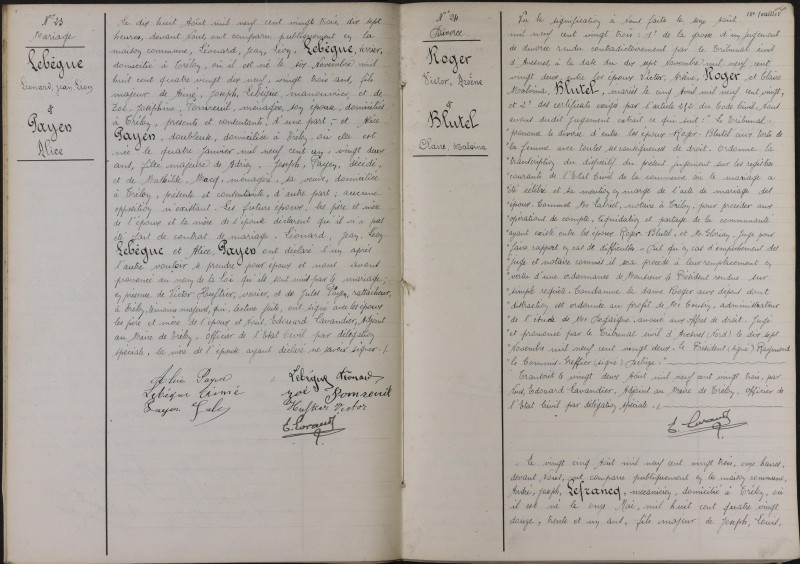 N° 23
Mariage
Lebègue
Léonard, Jean, Léon
&
Payen
Alice
Le dix huit Août mil neuf cent vingt trois, dix sept
heures, devant Nous, ont comparu publiquement en la
maison commune, Léonard, Jean, Léon, Lebègue,
domicilié à Trélon, où il est né le six Novembre mil
huit cent quatre vingt dix neuf, vingt trois ans, fils
majeur de Aimé, Joseph, Lebègue, manouvrier, et de
Zoé, Joséphine, Pomreuil, ménagère, son épouse, domiciliés
à Trélon, présents et consentants, d'une part; et Alice
Payen, doubleuse, domiciliée à Trélon, où elle est
née le quatre Janvier mil neuf cent un, vingt deux
ans, fille majeure de Joseph, Payen, décédé,
et de Mathilde, Macq, ménagère, sa veuve, domiciliée
à Trélon, présente et consentante, d'autre part; aucune
opposition n'existant. Les futurs époux, les père et mère
de l'époux et la mère de l'épouse déclarent qu'il n'a pas
été fait de contrat de mariage. Léonard, Jean, Léon
Lebègue et Alice, Payen ont déclaré l'un après
l'autre vouloir se prendre pour époux et nous avons
prononcé au nom de la loi qu'ils sont unis par le mariage;
en présence de Victor Huftier, verrier, et de Jules Payen, rattacheur,
à Trélon, témoins majeurs, qui, lecture faite, ont signé avec les époux
les père et mère de l'époux et Nous Edouard Lavandier, Adjoint
au Maire de Trélon, officier de l'Etat Civil par délégation
spéciale, la mère de l'épouse ayant déclaré ne savoir signer./.
Alice Payen
Lebègue Léonard
Lebègue Aimé
Zoé Pomreuil
Payen Jules
Huftier Victor
N° 24
Divorce
Roger
Victor, Arsène
&
Blutel
Claire, Malvina
Vu la signification à Nous faite le six juin
mil neuf cent vingt trois: 1° de la grosse d'un jugement
de divorce rendu contradictoirement par le Tribunal civil
d'Avesnes à la date du dix sept Novembre mil neuf cent
vingt deux entre les époux Victor, Arsène, Roger et Claire
Malvina, Blutel, mariés le cinq Août mil neuf cent vingt,
et 2° des certificats exigés par l'article 252 du Code Civil, Nous
avons dudit jugement extrait ce qui suit: " Le Tribunal
" prononce le divorce d'entre les époux Roger-Blutel aux torts de
" la femme avec toutes ses conséquences de droit. Ordonne la
" transcription du dispositif du présent jugement sur les registres
" courants de l'Etat Civil de la commune où le mariage a
" été célébré et sa mention en marge de l'acte de mariage des
" époux. Commet Me notaire à Trélon, pour procéder aux
" opérations de compte, liquidation et partage de la communauté
" ayant existé entre les époux Roger-Blutel et Mr Juge pour
" faire rapport en cas de difficultés. Dit qu'en cas d'empêchement des
" juge et notaire commis il sera procédé à leur remplacement en
" vertu d'une ordonnance de Monsieur le Président rendue sur
" simple requête. Condamne la dame Roger aux dépens dont
" distraction est ordonnée au profit de Me Cousin, administrateur
" de l'étude de Me avoué aux offres de droit. Jugé
" et prononcé par le Tribunal civil d'Avesnes (Nord) le dix sept
" Novembre mil neuf cent vingt deux. Le Président (signé) Raymond
" le Commis Greffier (signé)
Transcrit le vingt deux Août mil neuf cent vingt trois, par
Nous, Edouard Lavandier, Adjoint au Maire de Trélon, Officier de
l'Etat Civil par délégation spéciale./.
Le vingt cinq Août mil neuf cent vingt trois, onze heures,
devant Nous, ont comparu publiquement en la maison commune,
André, Joseph, Lefrancq, mécanicien, domicilié à Trélon, où
il est né le onze Mai, mil huit cent quatre vingt
douze, trente et un ans, fils majeur de Joseph, Louis,